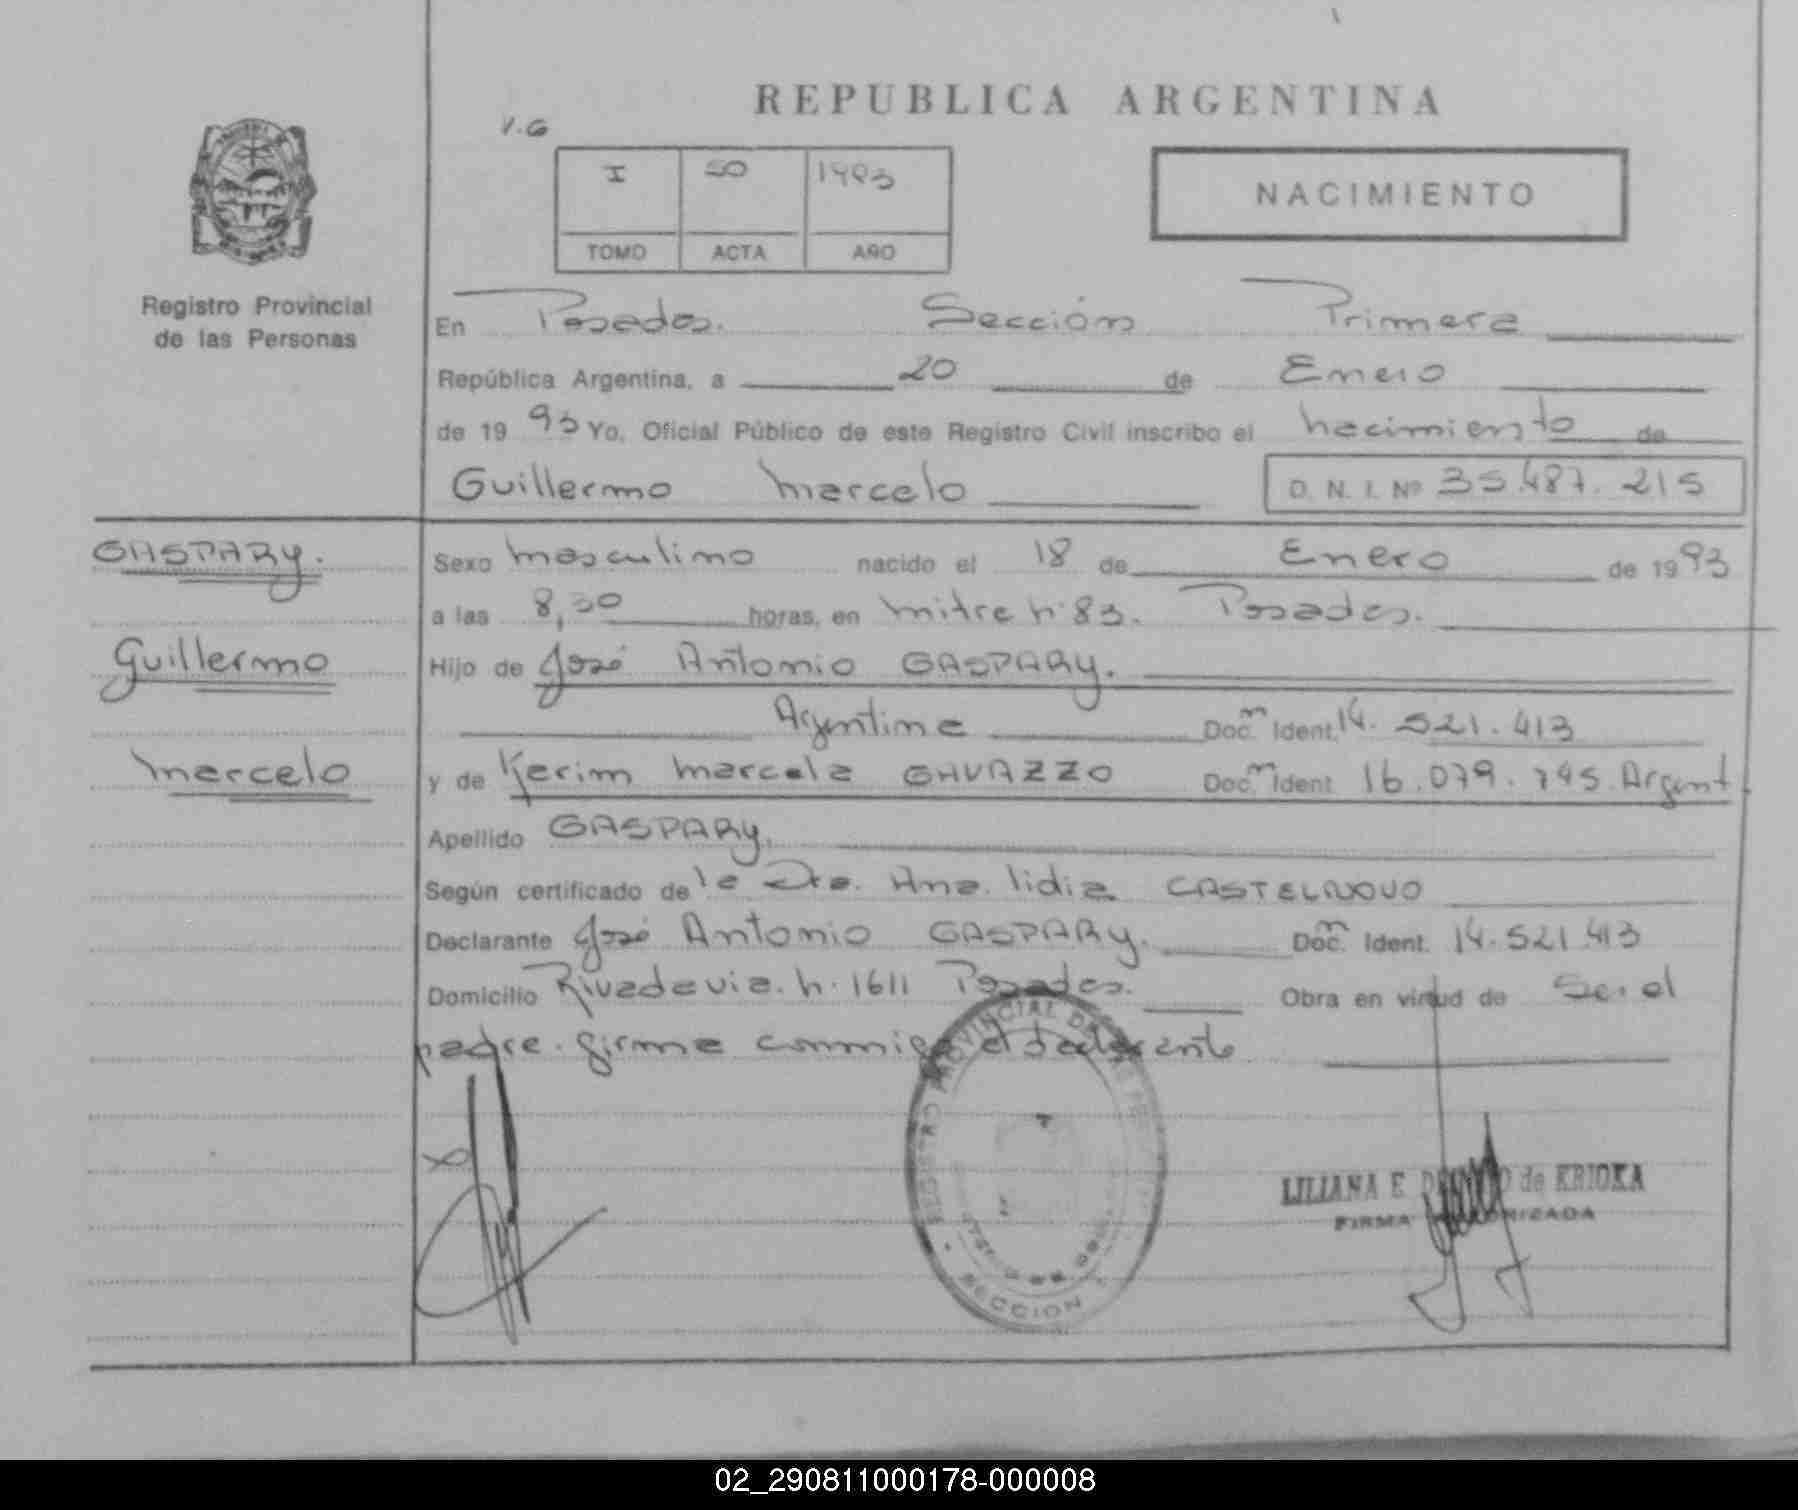 REPUBLICA ARGENTINA
V.G
I 50 1993
TOMO ACTA AÑO
NACIMIENTO
Registro Provincial
de las Personas
En Posadas. Sección Primera
República Argentina, a 20 de Enero
de 1993 Yo, Oficial Público de este Registro Civil inscribo el nacimiento de
Guillermo Marcelo D. N. I. Nº 35.487.215
GASPARY.
Guillermo
Marcelo
Sexo masculino nacido el 18 de Enero de 1993
a las 8,30 horas, en Mitre Nº 83. Posadas.
Hijo de José Antonio GASPARY.
Argentina Doc. Ident. 14.521.413
y de Karim Marcela GAVAZZO Doc. Ident. 16.079.745. Argent.
Apellido GASPARY.
Según certificado de la Dra. Ana. Lidia CASTELNOVO
Declarante José Antonio GASPARY. Doc. Ident. 14.521.413
Domicilio Rivadavia. Nº 1611 Posadas. Obra en virtud de Ser el
padre. firma conmigo el declarante
REGISTRO PROVINCIAL DE LAS
SECCION 1
LILIANA E de KRIOKA
FIRMA AUTORIZADA
02_290811000178-000008